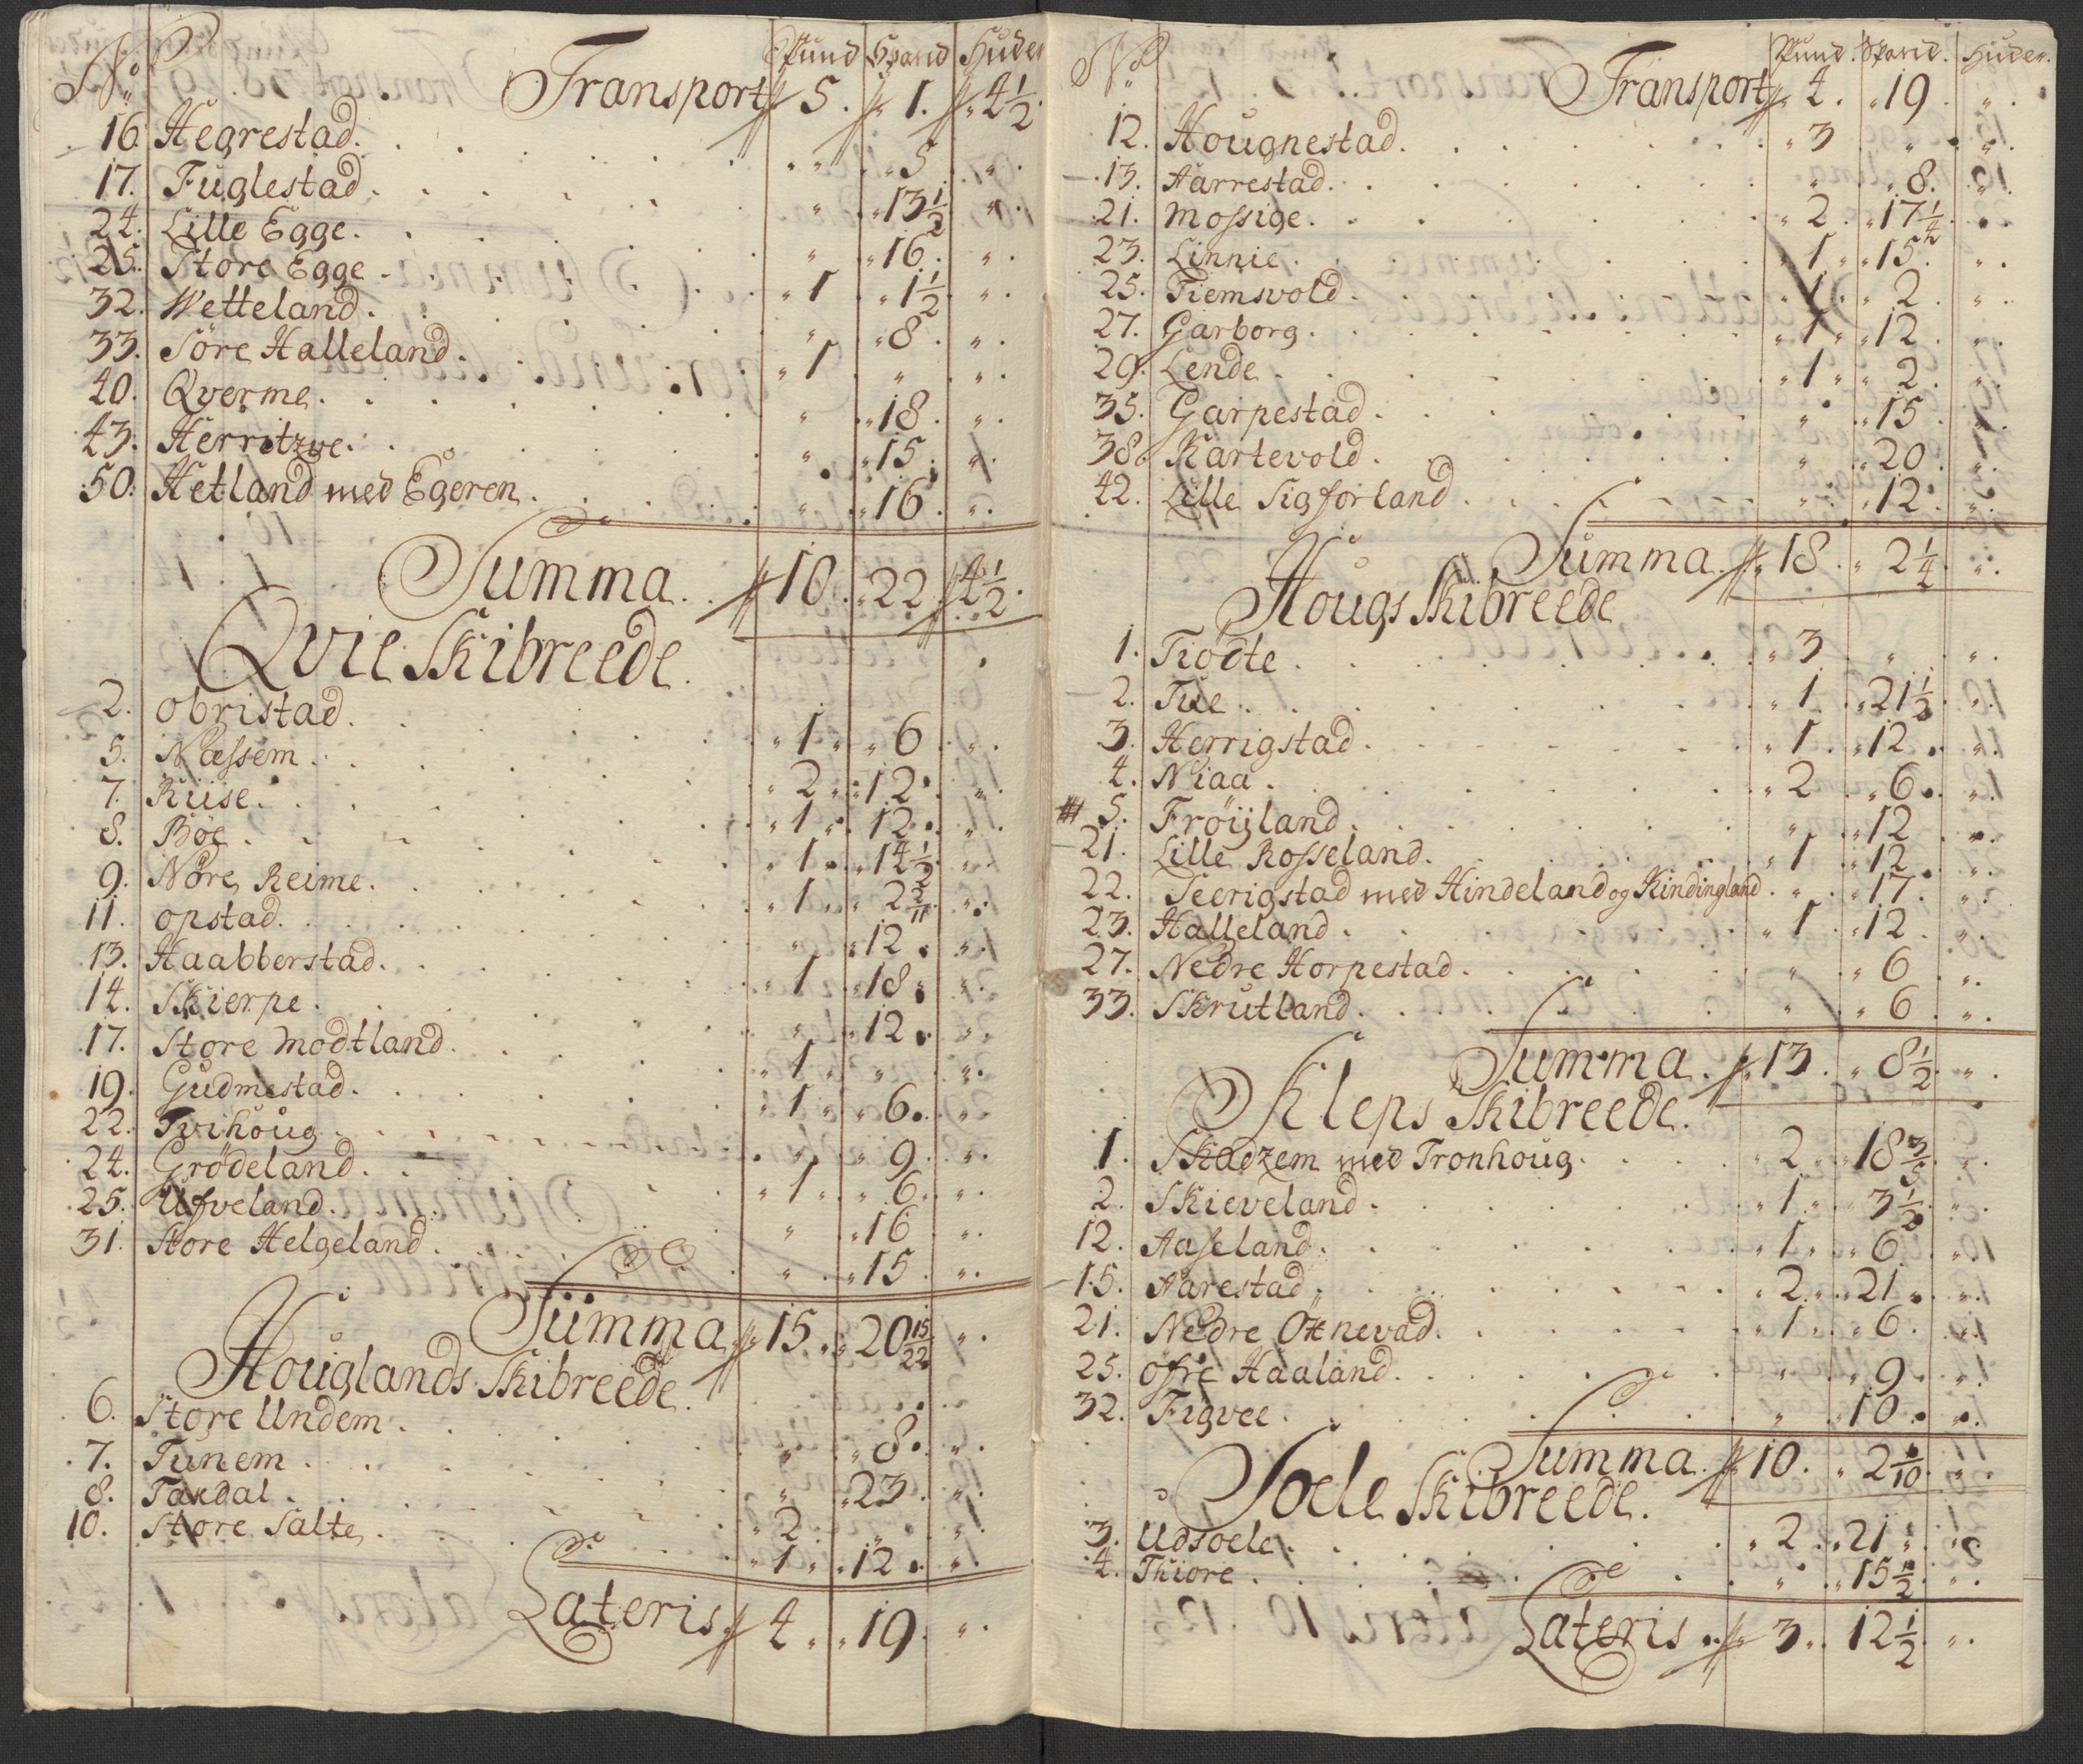 No Pund Spand Huder
Transport 5. 1. 4½.
16. Hegrestad. " 5 "
17. Fuglestad. " 13½ "
24. Lille Egge. " 16. "
25. Store Egge 1 1½ "
32. Wetteland. " 8. "
33. Söre Halleland. 1 " "
40. Qverme. " 18. "
43. Herritzve. " 15. "
50. Hetland med Egeren. " 16. "
Summa. 10. 22. 4½.
Qvie Skibreede.
2. Obristad. 1 6 "
5. Næssem. 2 12. "
7. Riise. 1 12. "
8. Böe. 1 14½ "
9. Nöre Reime. 1 2 2/11 "
11. Opstad. " 12. "
13. Haabberstad. 1 18. "
14. Skierpe. " 12. "
17. Store Modtland. 1 " "
19. Gudmestad. 1 6. "
22. Tvihoug. " 9. "
24. Grödeland. 1 6. "
25. Ufveland. " 16 "
31. Store Helgeland. " 15. "
Summa 15. 20 15/22 "
Houglands Skibreede.
6. Store Undem. " 8. "
7. Tunem. " 23. "
8. Taxdal. 2 " "
10. Store Salte. 1 12. "
Lateris 4. 19. "
No Pund. Spand. Huder.
Transport 4. 19. "
12. Hougnestad. 3 " "
13. Aarrestad. " 8. "
21. Mossige. 2 17¼ "
23. Linnie. 1 15. "
25. Tiemsvold. 1 2. "
27. Garborg. 1 12. "
29. Lende. 1 2. "
35. Garpestad. " 15. "
38. Kartevold. " 20. "
42. Lille Sigforland. " 12. "
Summa. 18. 2¼ "
Hougs Skibreede
1. Tiödte. 3 " "
2. Tue. 1 21½ "
3. Herrigstad. 1 12. "
4. Niaa. 2 6. "
5. Fröijland. " 12 "
21. Lille Rosseland. 1 12. "
22. Seerigstad med Hindeland og Kindingland. " 17. "
23. Halleland. 1 12. "
27. Nedre Horpestad. " 6 "
33. Skrutland. " 6 "
Summa. 13. 8½ "
Kleps Skibreede.
1. Skadzem med Tronhoug. 2 18 3/5 "
2. Skieveland. 1 3½ "
12. Aaseland. 1 6 "
15. Aarestad. 2 21. "
21. Nedre Öxnevad. 1 6. "
25. Öfre Haaland. " 9. "
32. Figvee. " 10. "
Summa. 10. 2 1/10 "
Soele Skibreede.
3. Udsoele. 2 21 "
4. Thiore. " 15½ "
Lateris 3. 12½ "